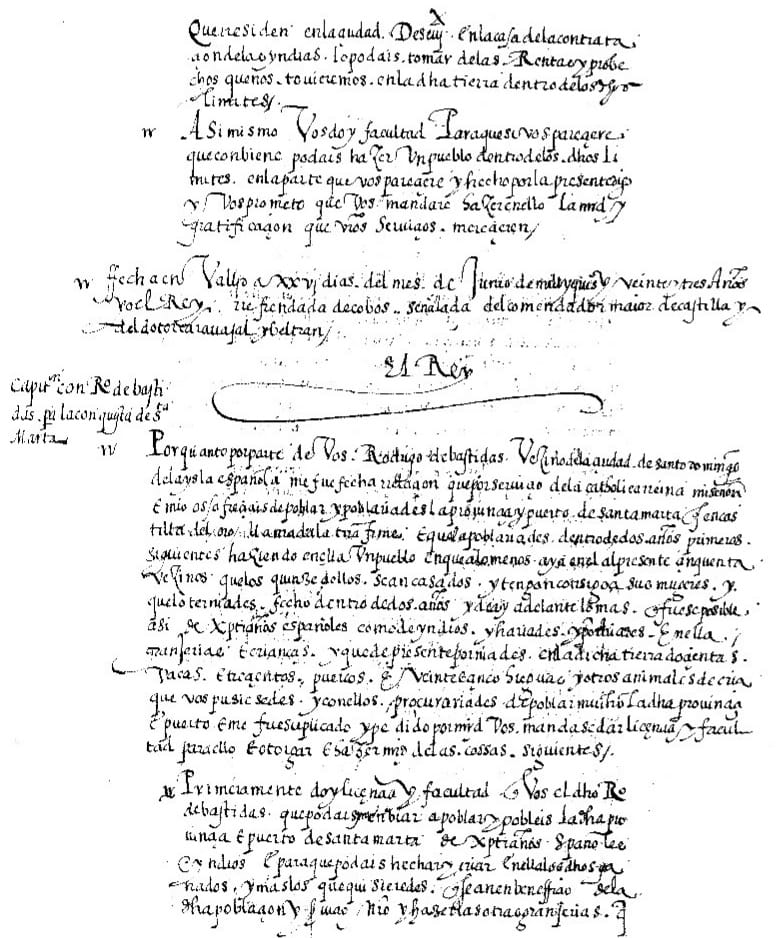 X
Que rresiden en la çiudad. De seuj.ª En la casa de la contrata
çion de las yndias. lo podais. tomar de las. Rentas y probe
chos que nos. touieremos. en la dha tierra dentro de los dhos
limites/.
Asimismo Vos doy facultad Para que si vos pareçiere
que conbiene podais hazer Un pueblo dentro de los. dhos li
mites. en la parte que vos pareçiere y fecho por la presente digo
y Vos prometo que Vos mandare hazer en ello la md y
gratificaçion que vros seruiçios. mereçieren/
ffecha en Vallid a xxvj dias. del mes. de Junio de mill y quis y veinte y tres Años
yo el Rey. rrefrendada de cobos. señalada del comendador maior de castilla y
del dotor carauajal y beltran/
El Rey
Capit.on con Ro de basti
das. pa la conquista de sta
Marta
Por quanto por parte de Vos. Rodrigo de bastidas. Vezino de la çiudad. de santo domingo
de la ysla española me fue fecha rrelaçion que por seruiçio de la catholica rreina mi señora
E mio os ofreçiais de poblar y poblariades la prouinçia y puerto. de santa marta q es en cas
tilla del oro. llamada la trra firme. E que la poblariades. dentro de dos. años primeros.
siguientes haziendo en ella Un pueblo en que a lo menos. aya en el al presente çinquenta
Vezinos que los quinze dellos. sean casados. y tengan consigo a sus mugeres. y.
que lo terniades. fecho dentro de dos. años y de ay adelante lo mas. q fuese posible
asi de xptianos españoles como de yndios. y hariades. y porniades. En ella.
granjerias E crianças. y que de presente porniades. en la dicha tierra dozientas.
Vacas. E trezientos. puercos. E veinte çinco yeguas y otros animales de cria
que vos pusiesedes. y con ellos. procurariades de poblar mucho la dha prouinçia
E puerto E me fue suplicado y pedido por mrd Vos. mandase dar liçençia y facul
tad para ello E otorgar E hazer mrd de las. cossas. siguientes/.
Primeramente doy liçençia y facultad a Vos el dho Ro
de bastidas. que podais enbiar a poblar y pobleis la dha pro
uinça E puerto de santa marta de xptianos Españoles
E yndios E para que podais hechar y criar En ella los dhos ga
nados. y mas los que quisieredes. q sean en beneffiçio de la
dha poblaçion y seruiçio nro y hazer las otras granjerias. q